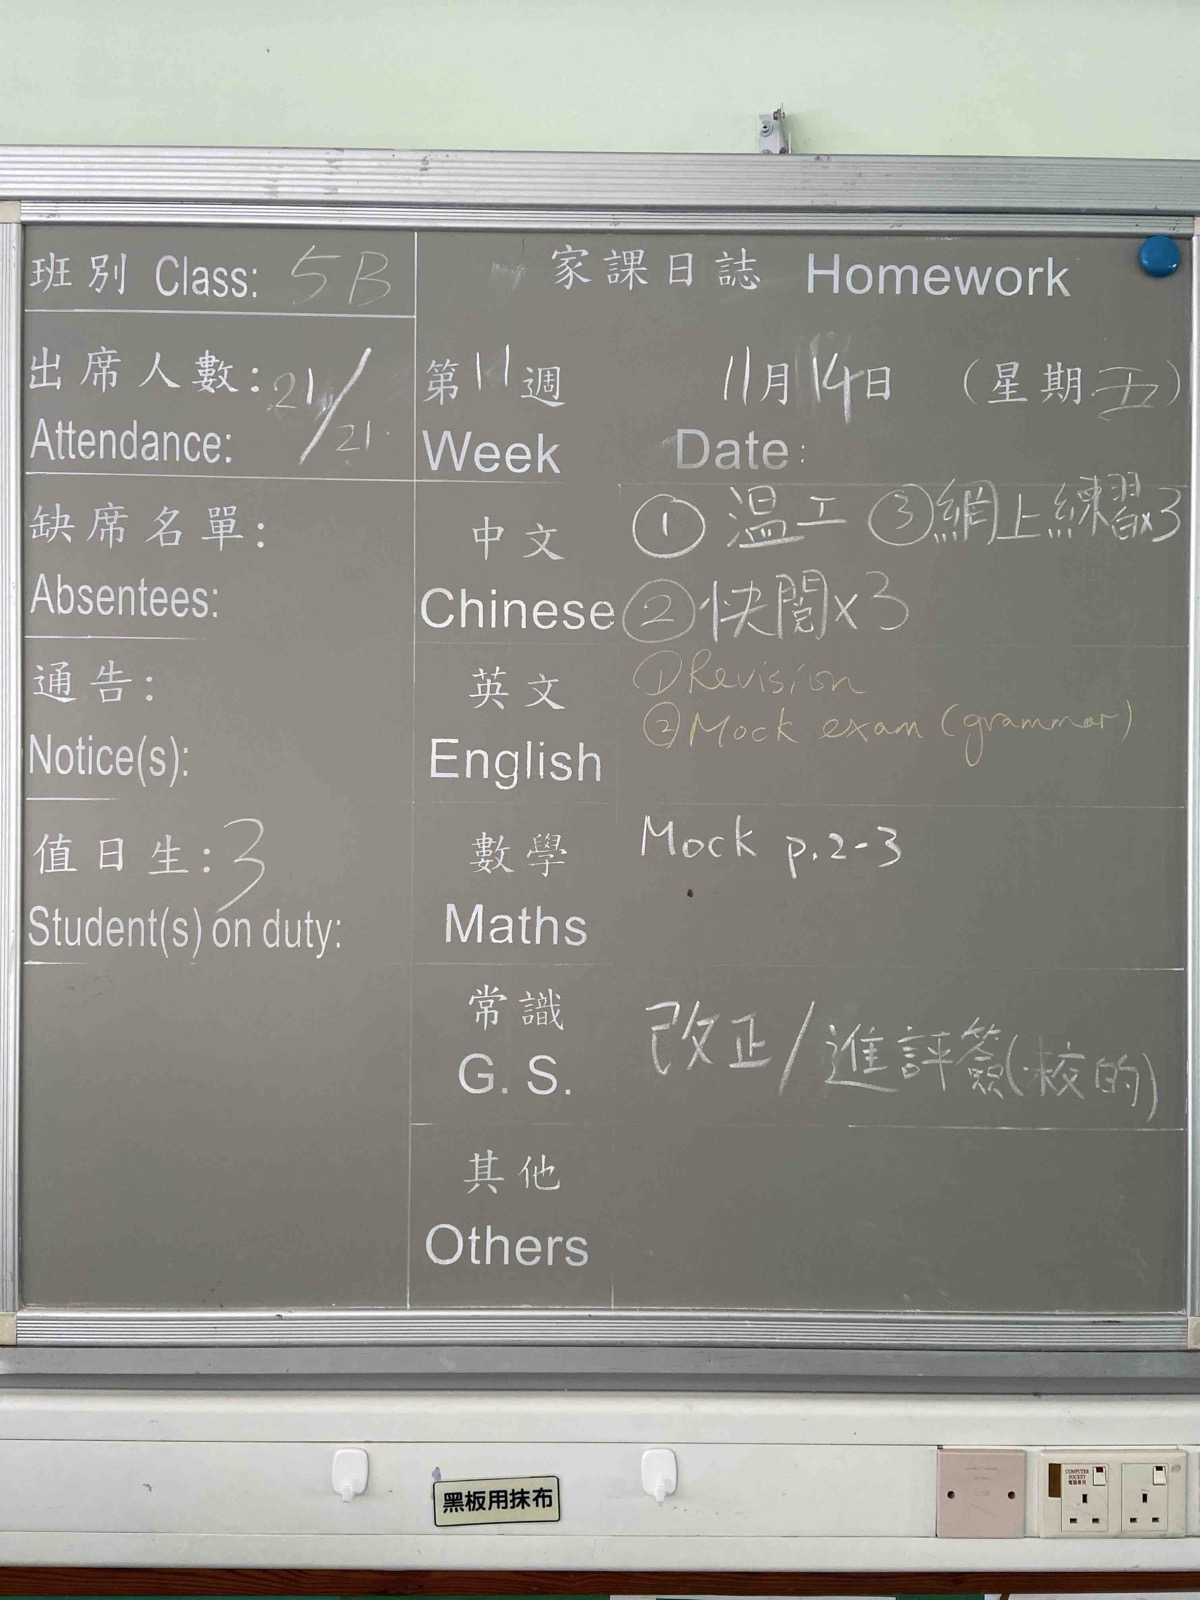 班別 Class: 5B
出席人數: 21/21
Attendance:
缺席名單:
Absentees:
通告:
Notice(s):
值日生: 3
Student(s) on duty:
家課日誌 Homework
第11週 11月14日 (星期五)
Week Date:
中文 ① 温工 ③網上練習x3
Chinese ②快閱x3
英文 ①Revision
②Mock exam (grammar)
English
數學 Mock p.2-3
Maths
常識 改正/進評簽(校的)
G. S.
其他
Others
黑板用抹布
COMPUTER
SOCKET
電腦專用